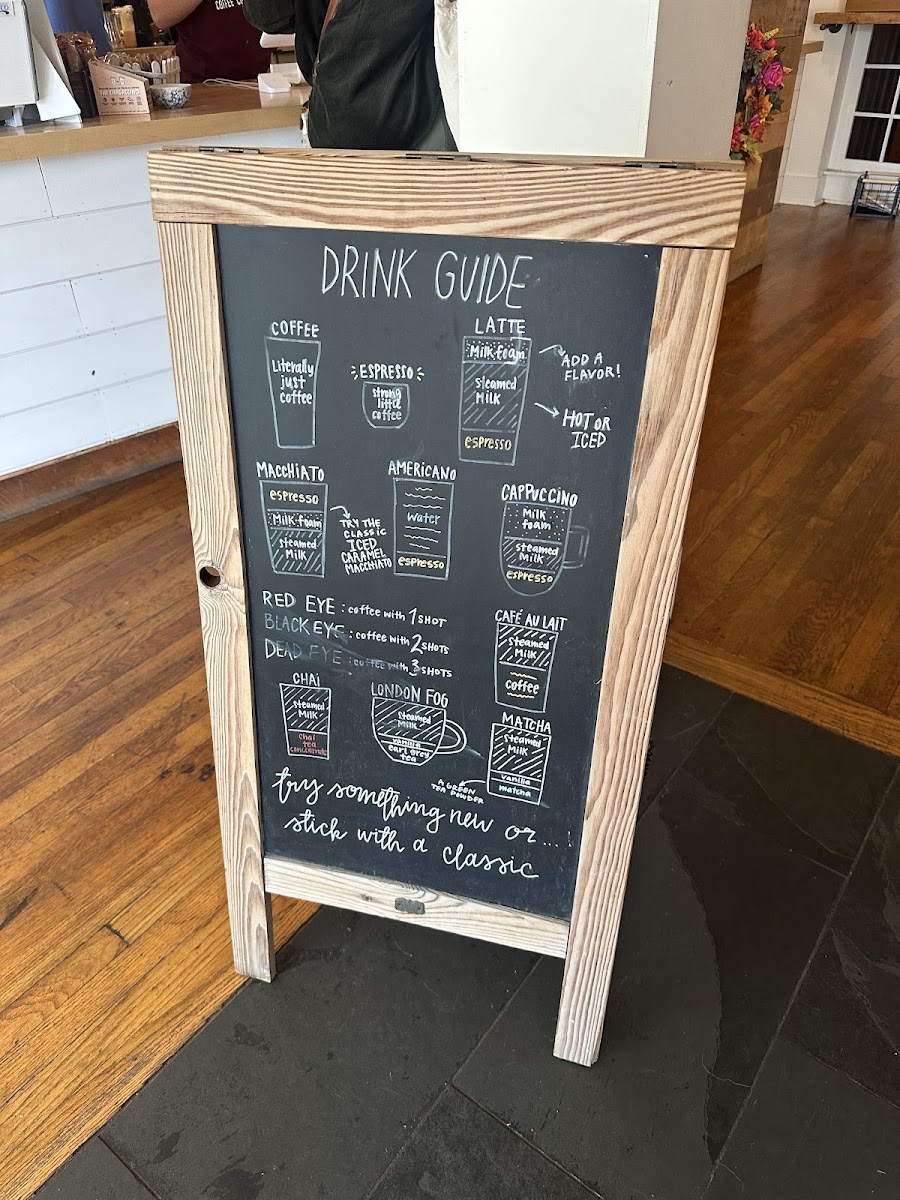 COFFEE CO
DRINK GUIDE
COFFEE
Literally
just
coffee
ESPRESSO
strong
little
coffee
LATTE
Milk foam
steamed
MILK
espresso
ADD A
FLAVOR!
HOT OR
ICED
MACCHIATO
espresso
Milk foam
steamed
MILK
TRY THE
CLASSIC
ICED
CARAMEL
MACCHIATO
AMERICANO
water
espresso
CAPPUCCINO
Milk
foam
steamed
MILK
espresso
RED EYE : coffee with 1 SHOT
BLACK EYE : coffee with 2 SHOTS
DEAD EYE : coffee with 3 SHOTS
CAFÉ AU LAIT
steamed
MILK
coffee
CHAI
steamed
MILK
chai
tea
concentrate
LONDON FOG
steamed
MILK
vanilla
earl grey
tea
MATCHA
steamed
MILK
vanilla
matcha
A GREEN
TEA POWDER
try something new or....
stick with a classic